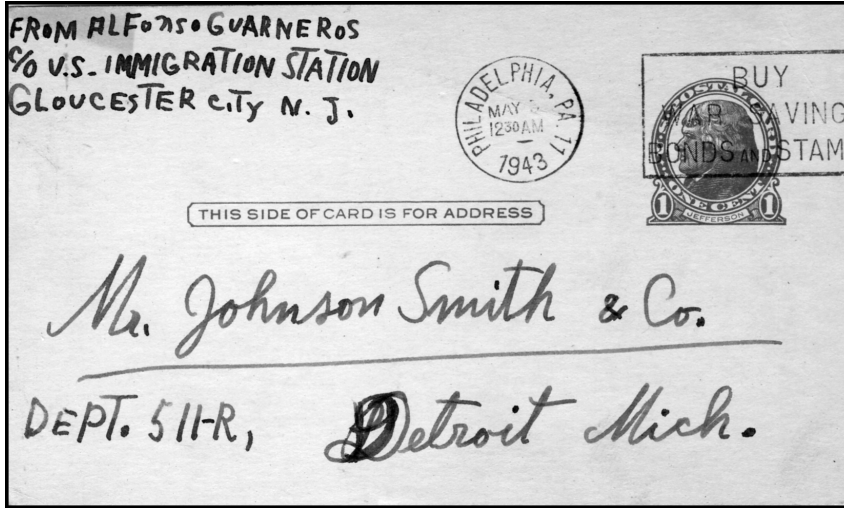 FROM ALFonso GUARNEROS
C/O U.S. IMMIGRATION STATION
GLOUCESTER CiTy N. J.
PHILADELPHIA, PA. 11
MAY
12 30 AM
1943
BUY
WAR SAVING
BONDS AND STAM
ONE CENT
1 JEFFERSON 1
THIS SIDE OF CARD IS FOR ADDRESS
Mr. Johnson Smith & Co.
DEPT. 511-R, Detroit Mich.